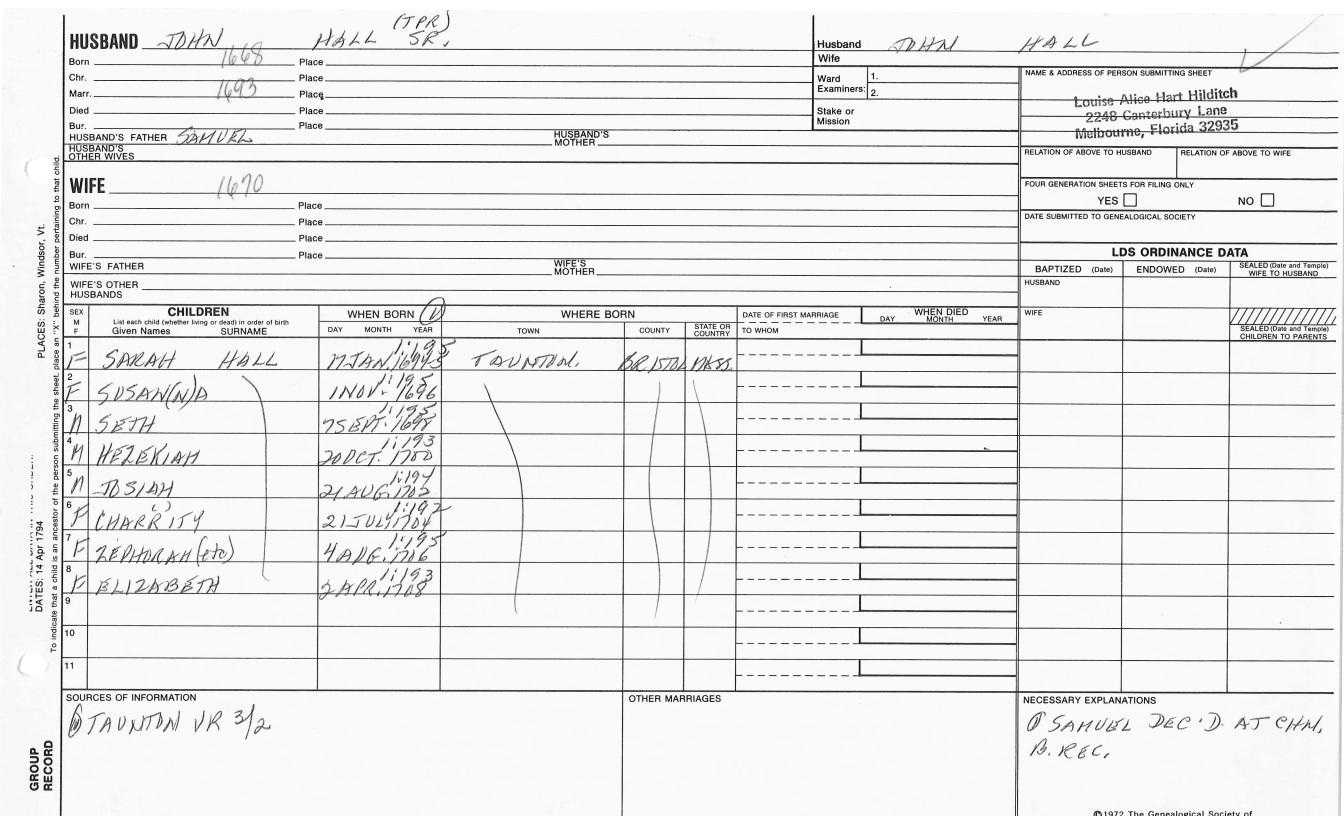 (TPR)
HUSBAND JOHN HALL SR.
Born 1668 Place
Chr. Place
Marr. 1693 Place
Died Place
Bur. Place
HUSBAND'S FATHER SAMUEL HUSBAND'S MOTHER
HUSBAND'S OTHER WIVES
Husband JOHN HALL
Wife
Ward Examiners: 1.
2.
Stake or Mission
NAME & ADDRESS OF PERSON SUBMITTING SHEET
Louise Alice Hart Hilditch
2248 Canterbury Lane
Melbourne, Florida 32935
RELATION OF ABOVE TO HUSBAND RELATION OF ABOVE TO WIFE
FOUR GENERATION SHEETS FOR FILING ONLY
YES NO
DATE SUBMITTED TO GENEALOGICAL SOCIETY
WIFE 1670
Born Place
Chr. Place
Died Place
Bur. Place
WIFE'S FATHER WIFE'S MOTHER
WIFE'S OTHER HUSBANDS
LDS ORDINANCE DATA
BAPTIZED (Date) ENDOWED (Date) SEALED (Date and Temple) WIFE TO HUSBAND
HUSBAND
WIFE
SEALED (Date and Temple) CHILDREN TO PARENTS
SEX M F
CHILDREN
List each child (whether living or dead) in order of birth
Given Names SURNAME
WHEN BORN
DAY MONTH YEAR
WHERE BORN
TOWN COUNTY STATE OR COUNTRY
DATE OF FIRST MARRIAGE
TO WHOM
WHEN DIED
DAY MONTH YEAR
1 F SARAH HALL 17 JAN. 1694/5 1:195 TAUNTON, BRISTOL MASS.
2 F SUSAN(N)A 1 NOV. 1696 1:195
3 M SETH 7 SEPT. 1698 1:195
4 M HEZEKIAH 20 OCT. 1700 1:193
5 M JOSIAH 21 AUG. 1702 1:194
6 F CHARRITY 21 JULY 1704 1:192
7 F ZEPHORAH (etc) 4 AUG. 1706 1:195
8 F ELIZABETH 2 APR. 1708 1:193
9
10
11
SOURCES OF INFORMATION
① TAUNTON VR 3/2
OTHER MARRIAGES
NECESSARY EXPLANATIONS
SAMUEL DEC'D. AT CHN.
B. REC.
©1972 The Genealogical Society of
PLACES: Sharon, Windsor, Vt.
DATES: 14 Apr 1794
To indicate that a child is an ancestor of the person submitting the sheet, place an "X" behind the number pertaining to that child.
GROUP
RECORD